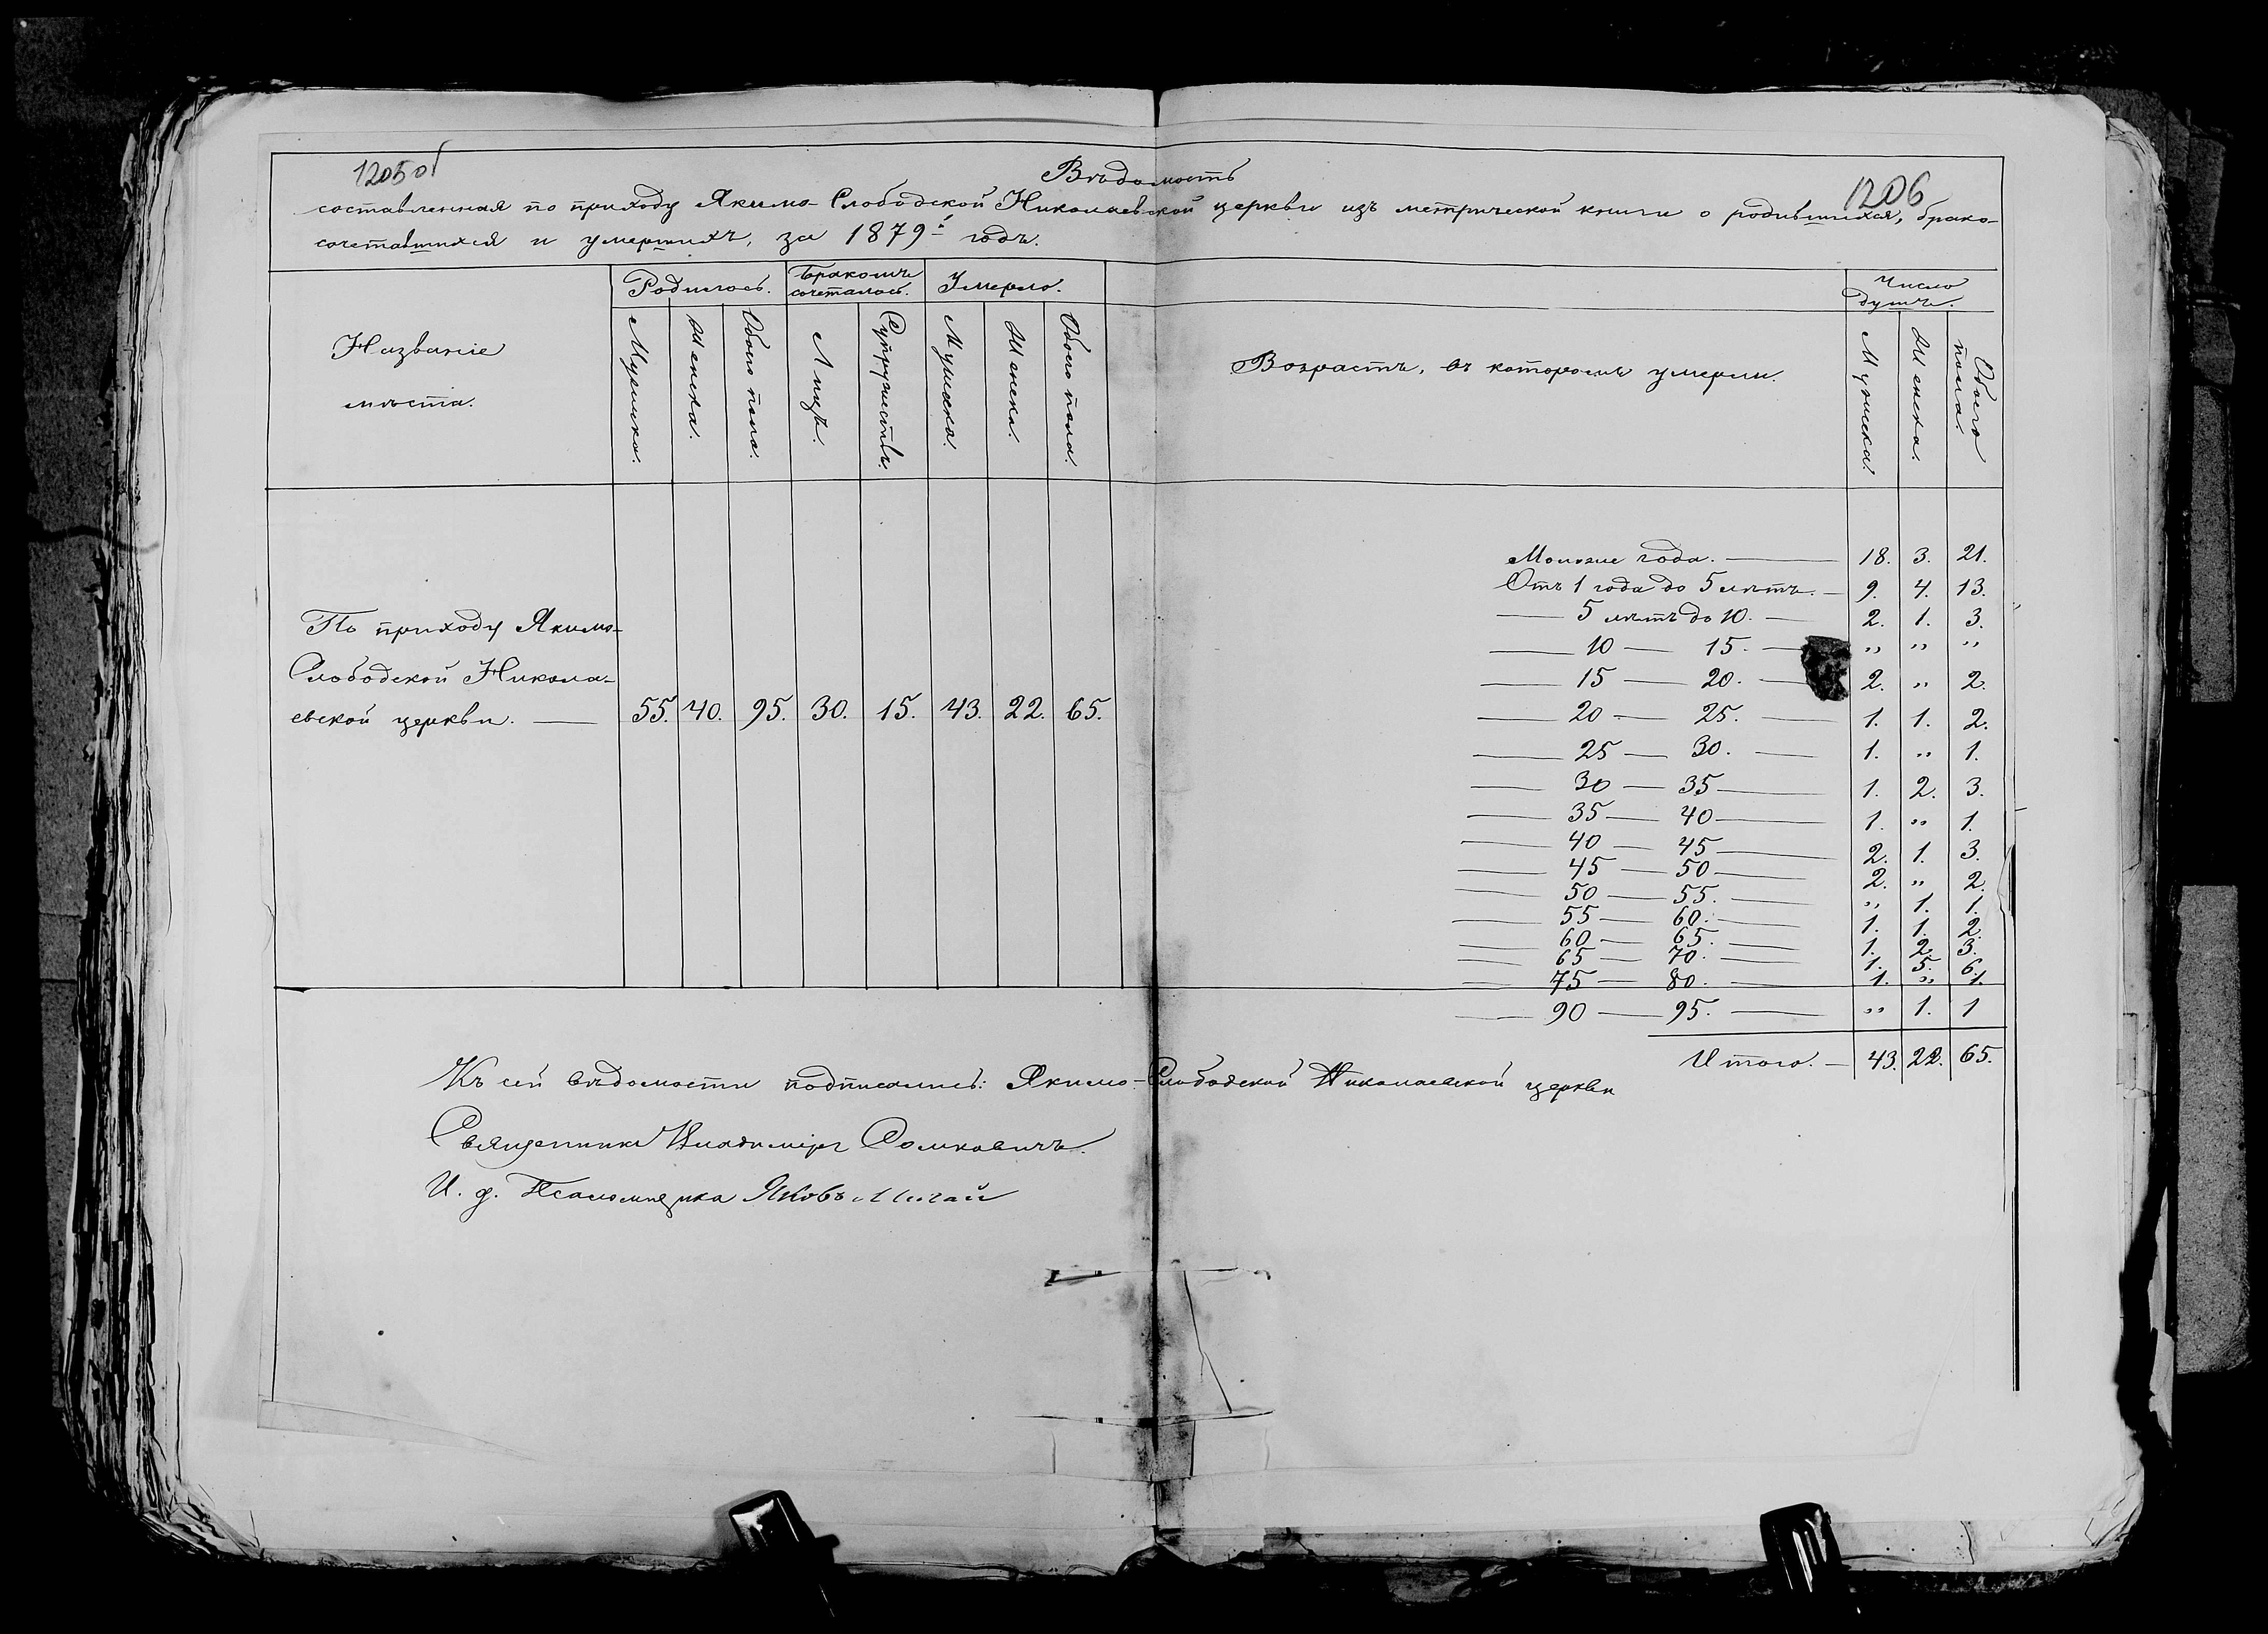 1205 об
1206
Вѣдомость
составленная по приходу Якимо-Слободской Николаевской церкви изъ метрической книги о родившихся, брако-
сочетавшихся и умершихъ, за 1879й годъ.
Названіе
мѣста.
Родилось.
Бракомъ
сочеталось.
Умерло.
Мужска.
Женска.
Обоего пола.
Лицъ.
Супружествъ.
Мужска.
Женска.
Обоего пола.
Возрастъ, въ которомъ умерли.
Число
душъ.
Мужска.
Женска.
Обоего
пола.
По приходу Якимо-
Слободской Никола-
евской церкви. — 55. 40. 95. 30. 15. 43. 22. 65.
Моложе года. — 18. 3. 21.
Отъ 1 года до 5 лѣтъ. — 9. 4. 13.
— 5 лѣтъ до 10. — 2. 1. 3.
— 10 — 15. — " " "
— 15 — 20. — 2. " 2.
— 20 — 25. — 1. 1. 2.
— 25 — 30. — 1. " 1.
— 30 — 35 — 1. 2. 3.
— 35 — 40 — 1. " 1.
— 40 — 45 — 2. 1. 3.
— 45 — 50 — 2. " 2.
— 50 — 55. — " 1. 1.
— 55 — 60. — 1. 1. 2.
— 60 — 65. — 1. 2. 3.
— 65 — 70. — 1. 5. 6.
— 75 — 80. — 1. " 1.
— 90 — 95. — " 1. 1
Итого. — 43. 22. 65.
Къ сей вѣдомости подписались: Якимо-Слободской Николаевской церкви
Священникъ Владиміръ Сомковичъ.
И. д. Псаломщика Яковъ